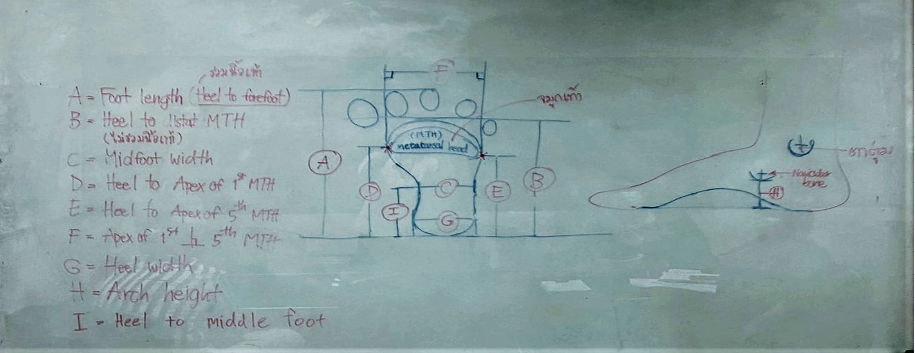 รวมนิ้วเท้า
A = Foot length (Heel to forefoot)
B = Heel to 1st MTH
(ไม่รวมนิ้วเท้า)
C = Midfoot width
D = Heel to Apex of 1st MTH
E = Heel to Apex of 5th MTH
F = Apex of 1st 5th MTH
G = Heel width
H = Arch height
I = Heel to middle foot
F
จมูกเท้า
(MTH)
metatarsal head
A
D
C
E
B
I
G
ตาตุ่ม
Navicular
bone
H